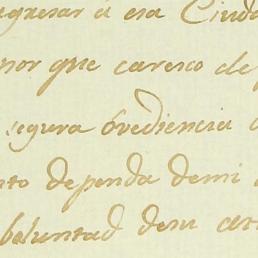 egresar á esa Ciuda
nor que caresco de
segura óvediencia
nto dependa demi
beluntad demi cer